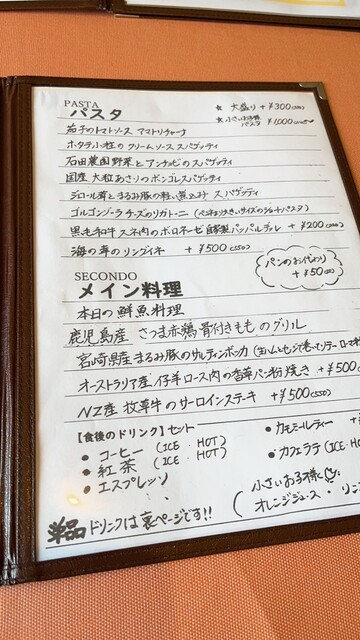 PASTA
パスタ
☆ 大盛り +¥300(330)
☆ 小さいお子様パスタ ¥1,000
茄子のトマトソース アマトリチャーナ
ホタテと小柱のクリームソース スパゲッティ
石田農園野菜とアンチョビのスパゲッティ
国産 大粒あさりのボンゴレスパゲッティ
ジロール茸とまるみ豚の軽い煮込み スパゲッティ
ゴルゴンゾーラチーズのリガトーニ (ペンネより大きいサイズのショートパスタ)
黒毛和牛スネ肉のボロネーゼ 自家製パッパルデッレ +¥200
海の幸のリングイネ +¥500(550)
パンのおかわり
+¥50
SECONDO
メイン料理
本日の鮮魚料理
鹿児島産 さつま赤鶏骨付きもものグリル
宮崎県産まるみ豚のサルティンボッカ
オーストラリア産 仔羊ロース肉の香草パン粉焼き +¥500
NZ産 牧草牛のサーロインステーキ +¥500(550)
【食後のドリンク】セット
• コーヒー (ICE・HOT)
• 紅茶 (ICE・HOT)
• エスプレッソ
• カモミールティー
• カフェラテ (ICE・
小さいお子様
オレンジジュース・リン
単品ドリンクは裏ページです!!